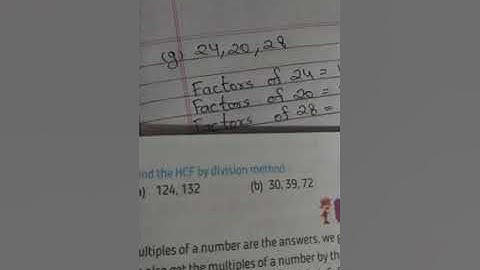 (g) 24, 20, 28
Factors of 24 =
Factors of 20 =
Factors of 28 =
nd the HCF by division method
) 124, 132 (b) 30, 39, 72
ultiples of a number are the answers, we g
also get the multiples of a number by th